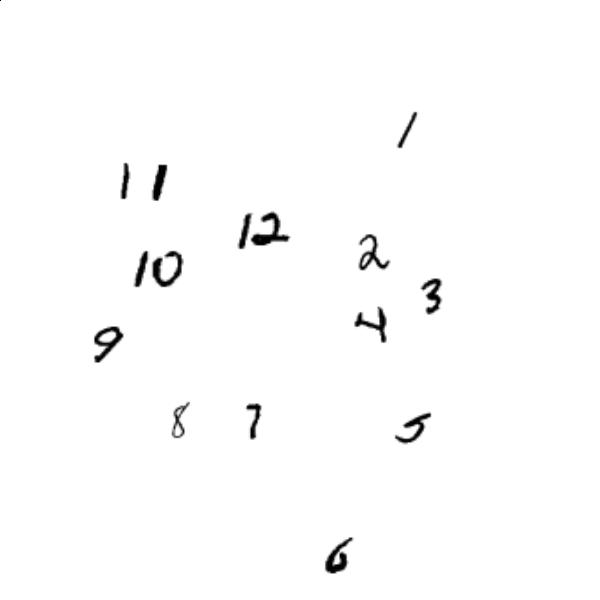 1
11
12
2
10
3
4
9
8 7 5
6